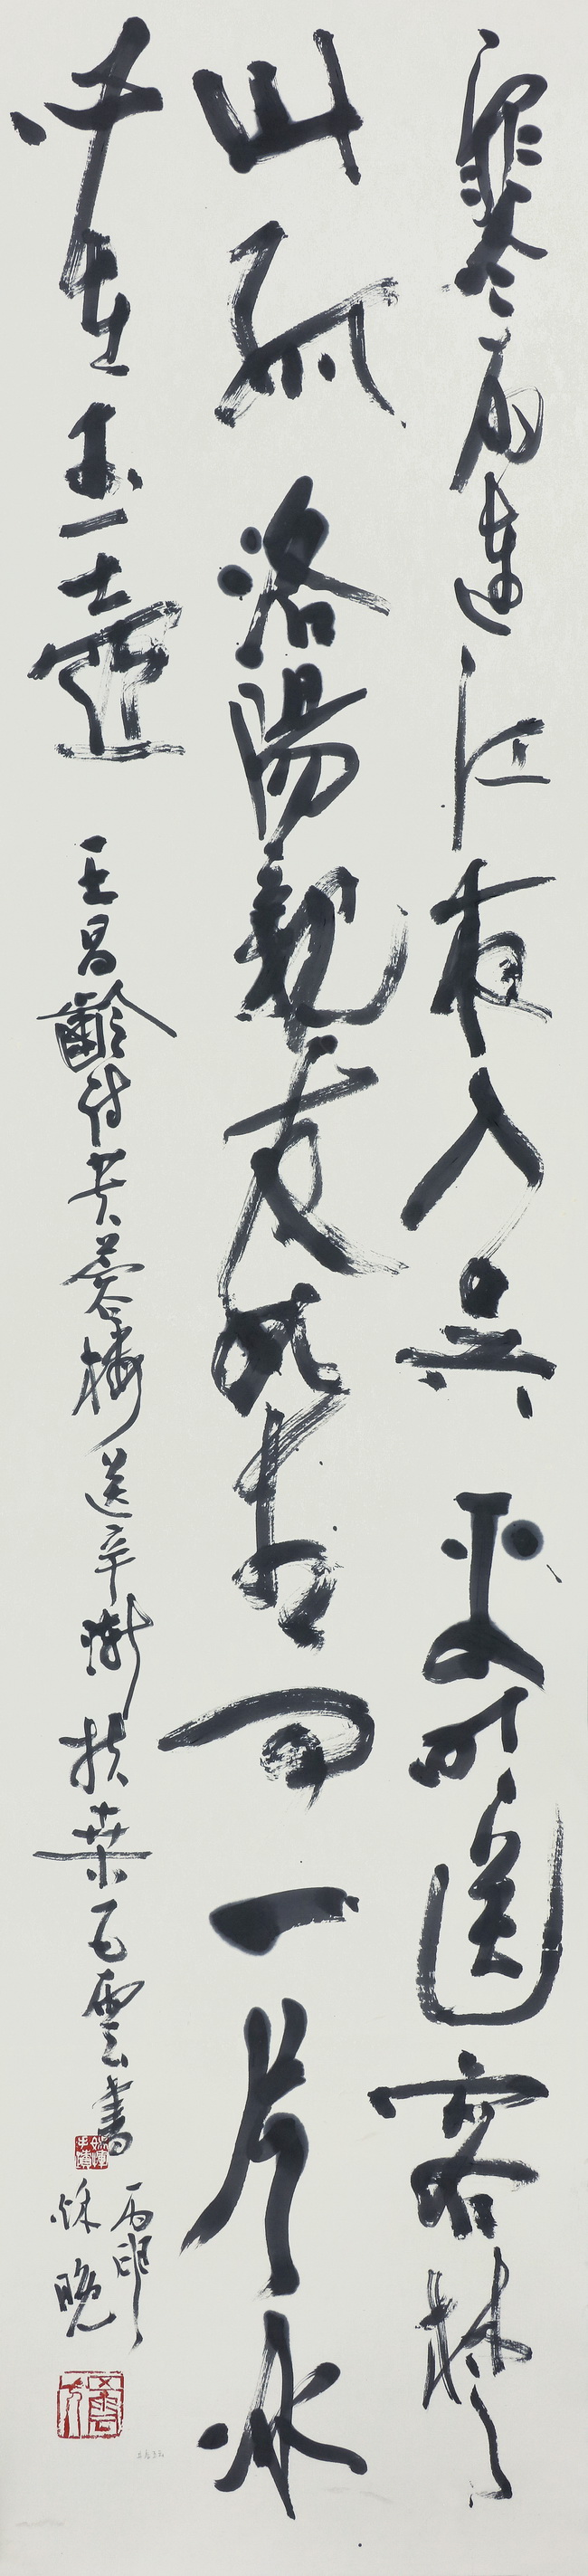 寒雨連江夜入吳平明送客楚
山孤洛陽親友如相問一片冰
心在玉壺
王昌齡詩芙蓉樓送辛漸扶桑雲書
丙申
秋晚